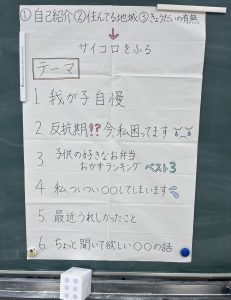 ①自己紹介②住んでる地域③きょうだいの有無
↓
サイコロをふる
テーマ
1 我が子自慢
2 反抗期!?今私困ってます
3. 子供の好きなお弁当
おかずランキング ベスト3
4 私ついつい○○してしまいます
5 最近うれしかったこと
6. ちょっと聞いて欲しい○○の話